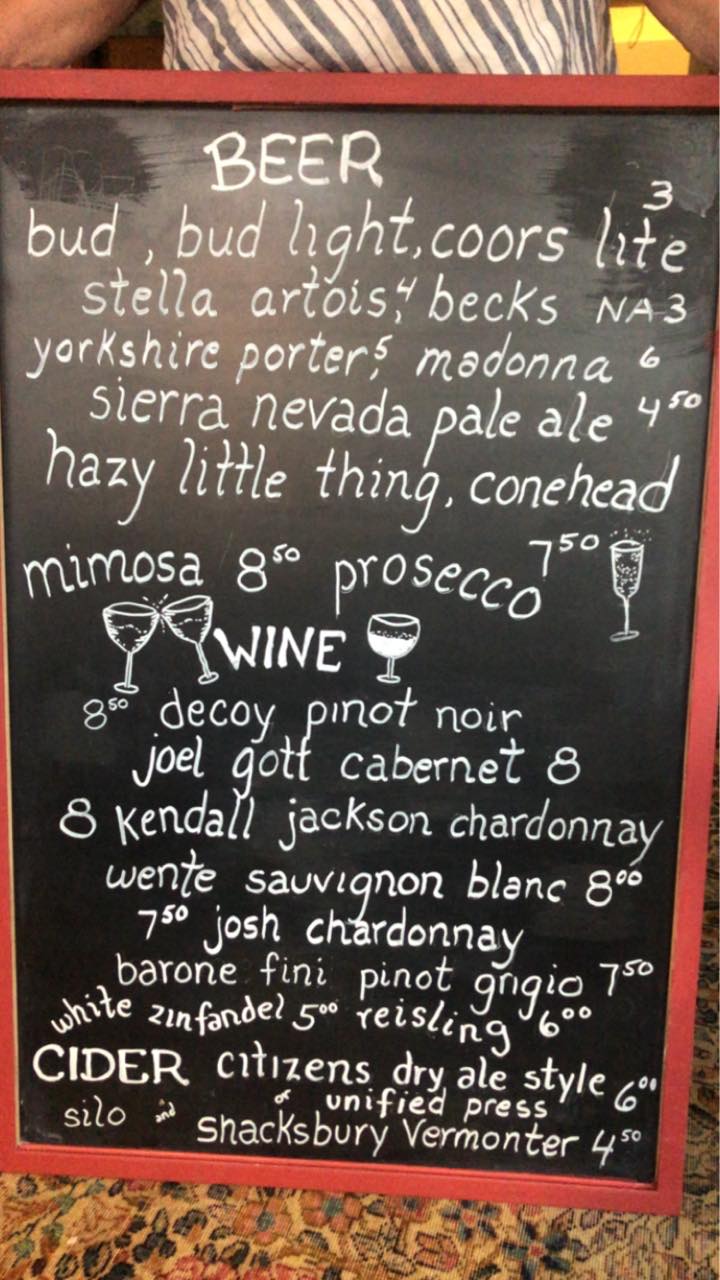 BEER
3
bud, bud light, coors lite
stella artois, 4 becks NA 3
yorkshire porter, 5 madonna 6
sierra nevada pale ale 4 50
hazy little thing, conehead
mimosa 8 50 prosecco 7 50
WINE
8 50 decoy pinot noir
joel gott cabernet 8
8 Kendall jackson chardonnay
wente sauvignon blanc 8 00
7 50 josh chardonnay
barone fini pinot grigio 7 50
white zinfandel 5 00 reisling 6 00
CIDER citizens dry, ale style 6 00
of unified press
silo and shacksbury Vermonter 4 50